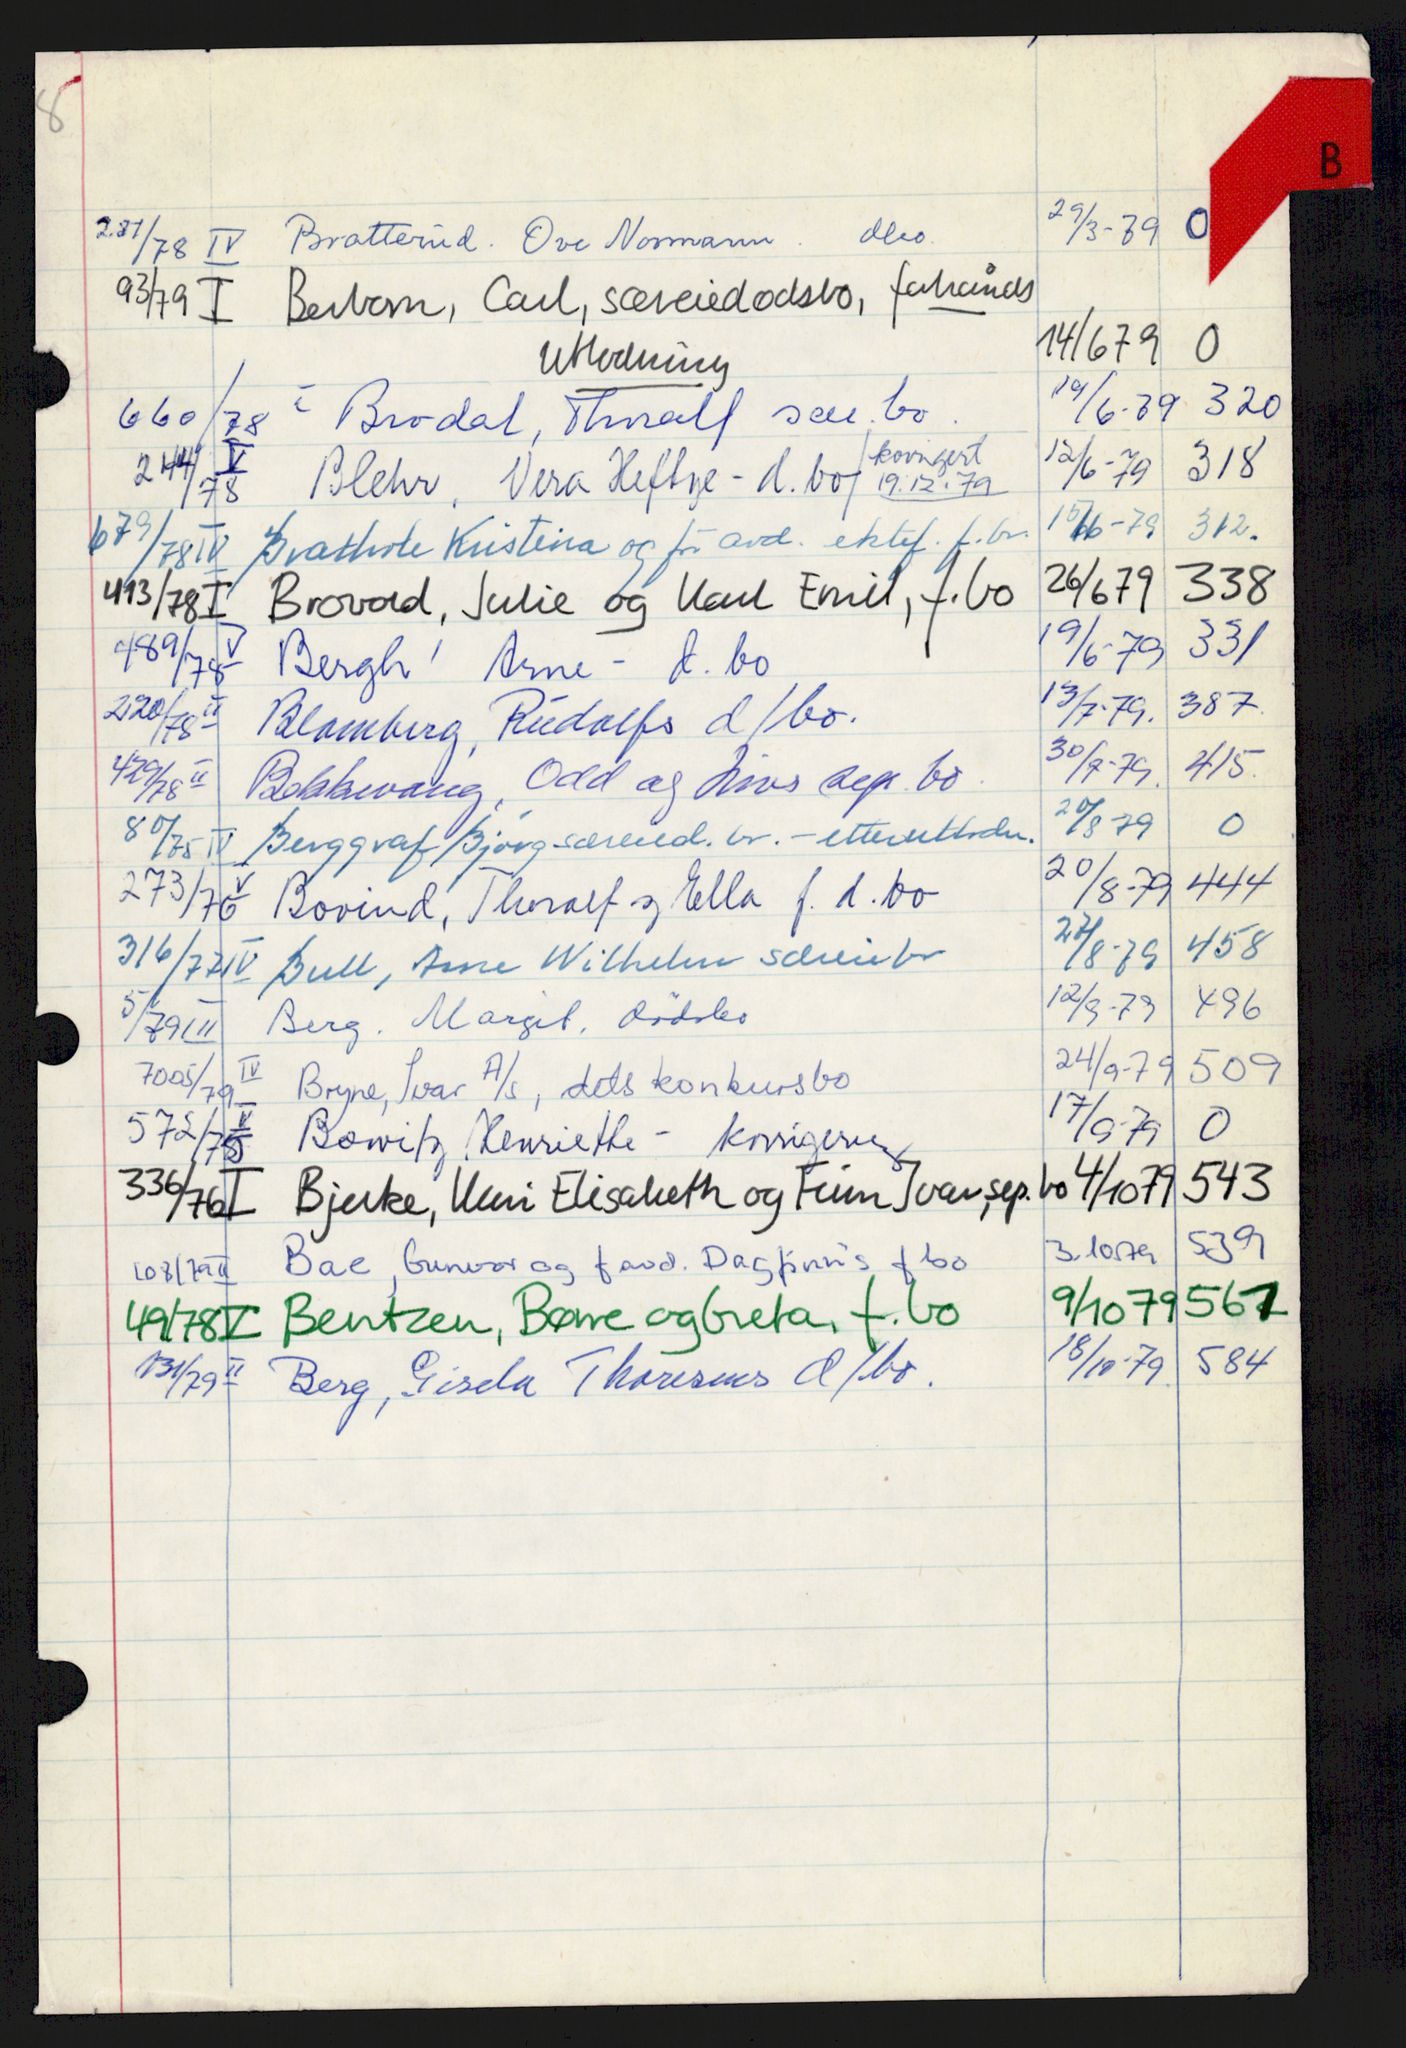 8
B
281/78 IV Bratterud. Ove Normann. dbo. 29/3-79 0
93/79 I Berbom, Carl, særeiedødsbo, forhånds
utlodning 14/6 79 0
660/78 I Brodal, Thoralf sær.bo. 19/6-79 320
244/78 V Blehr, Vera Heftye - d.bo/ korrigert 19.12.79 12/6-79 318
679/78 IV Kristina og før avd. ektef. f.bo. 15/6-79 312.
413/78 I Brovold, Julie og Karl Emil, f.bo 26/6 79 338
489/78 V Bergh, Arne - d.bo 19/6-79 331
220/78 II Blomberg, Rudolfs d/bo. 13/7-79. 387
429/78 II Odd og Livs sep.bo. 30/7-79. 415.
80/75 IV Berggrav Bjørg særeied.bo. - etterutlodn. 20/8-79 0
273/76 V Bovind, Thoralf og Ella f.d.bo 20/8-79 444
316/77 IV Bull, Arne Wilhelm særeiebo 27/8-79 458
5/79 III Berg. Margit. dødsbo 12/9-79 496
7005/79 IV Bryne, Ivar A/s, dets konkursbo 24/9-79 509
572/78 V Bowitz, Henriette - korrigering 17/9-79 0
336/76 I Bjerke, Kari Elisabeth og Finn Ivar, sep.bo 4/10 79 543
103/79 II Bae, Gunvor og f avd. Dagfinn's f bo 3.10 79 539
49/78 V Bentzen, Børre og Greta, f.bo 9/10 79 567
131/79 II Berg, Gisela Thoresens d/bo. 18/10-79. 584